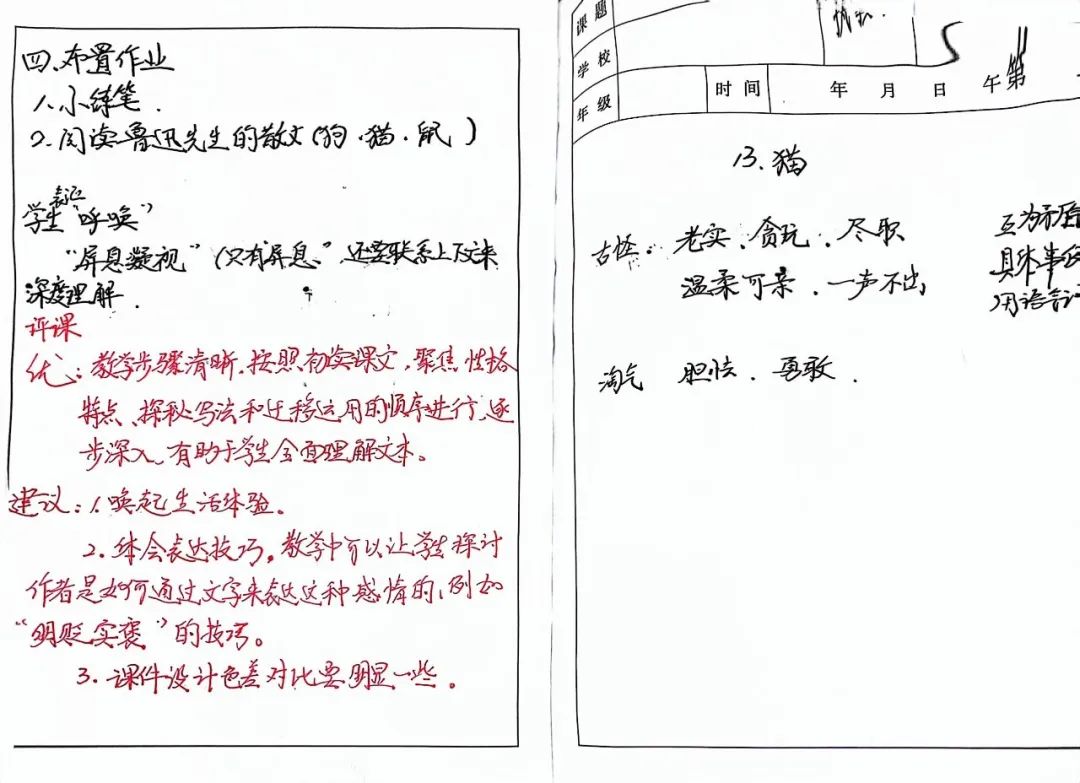 四、布置作业
1.小练笔.
2.阅读鲁迅先生的散文(狗·猫·鼠)
表述
学生“呼唤”
“屏息凝视”(只有“屏息”还要联系上下文来
深度理解.
评课
优:教学步骤清晰,按照初读课文,聚焦性格
特点、探秘写法和迁移运用的顺序进行,逐
步深入,有助于学生全面理解文本。
建议:1.唤起生活体验。
2.体会表达技巧,教学中可以让学生探讨
作者是如何通过文字来表达这种感情的,例如
“明贬实褒”的技巧。
3.课件设计色差对比要明显一些。
课题
学校
年级
时间 年 月 日 午 第
13.猫
古怪:老实、贪玩、尽职
温柔可亲、一声不出
互为矛盾
具体事
用语言
淘气 胆怯、勇敢.